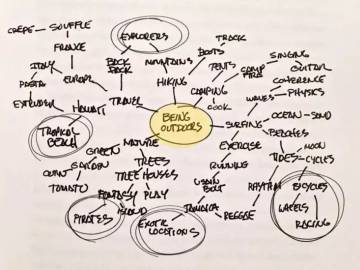 CREPE SOUFFLE
FRANCE
ITALY
PASTA
EUROPE
EXPLORERS
BACK
PACK
MOUNTAINS
HIKING
BOOTS
TRACK
TENTS
CAMP
FIRE
SINGING
GUITAR
CAMPING
COOK
WAVES
COHERENCE
PHYSICS
HAWAII
TRAVEL
TROPICAL
BEACH
BEING
OUTDOORS
SURFING
OCEAN - SAND
BEACHES
MOON
TIDES - CYCLES
NATURE
GREEN
GARDEN
TOMATO
TREES
TREE HOUSES
FANTASY
PLAY
ISLAND
PIRATES
EXERCISE
RUNNING
USAIN
BOLT
JAMAICA
REGGAE
RHYTHM
EXOTIC
LOCATIONS
BICYCLES
WHEELS
RACING